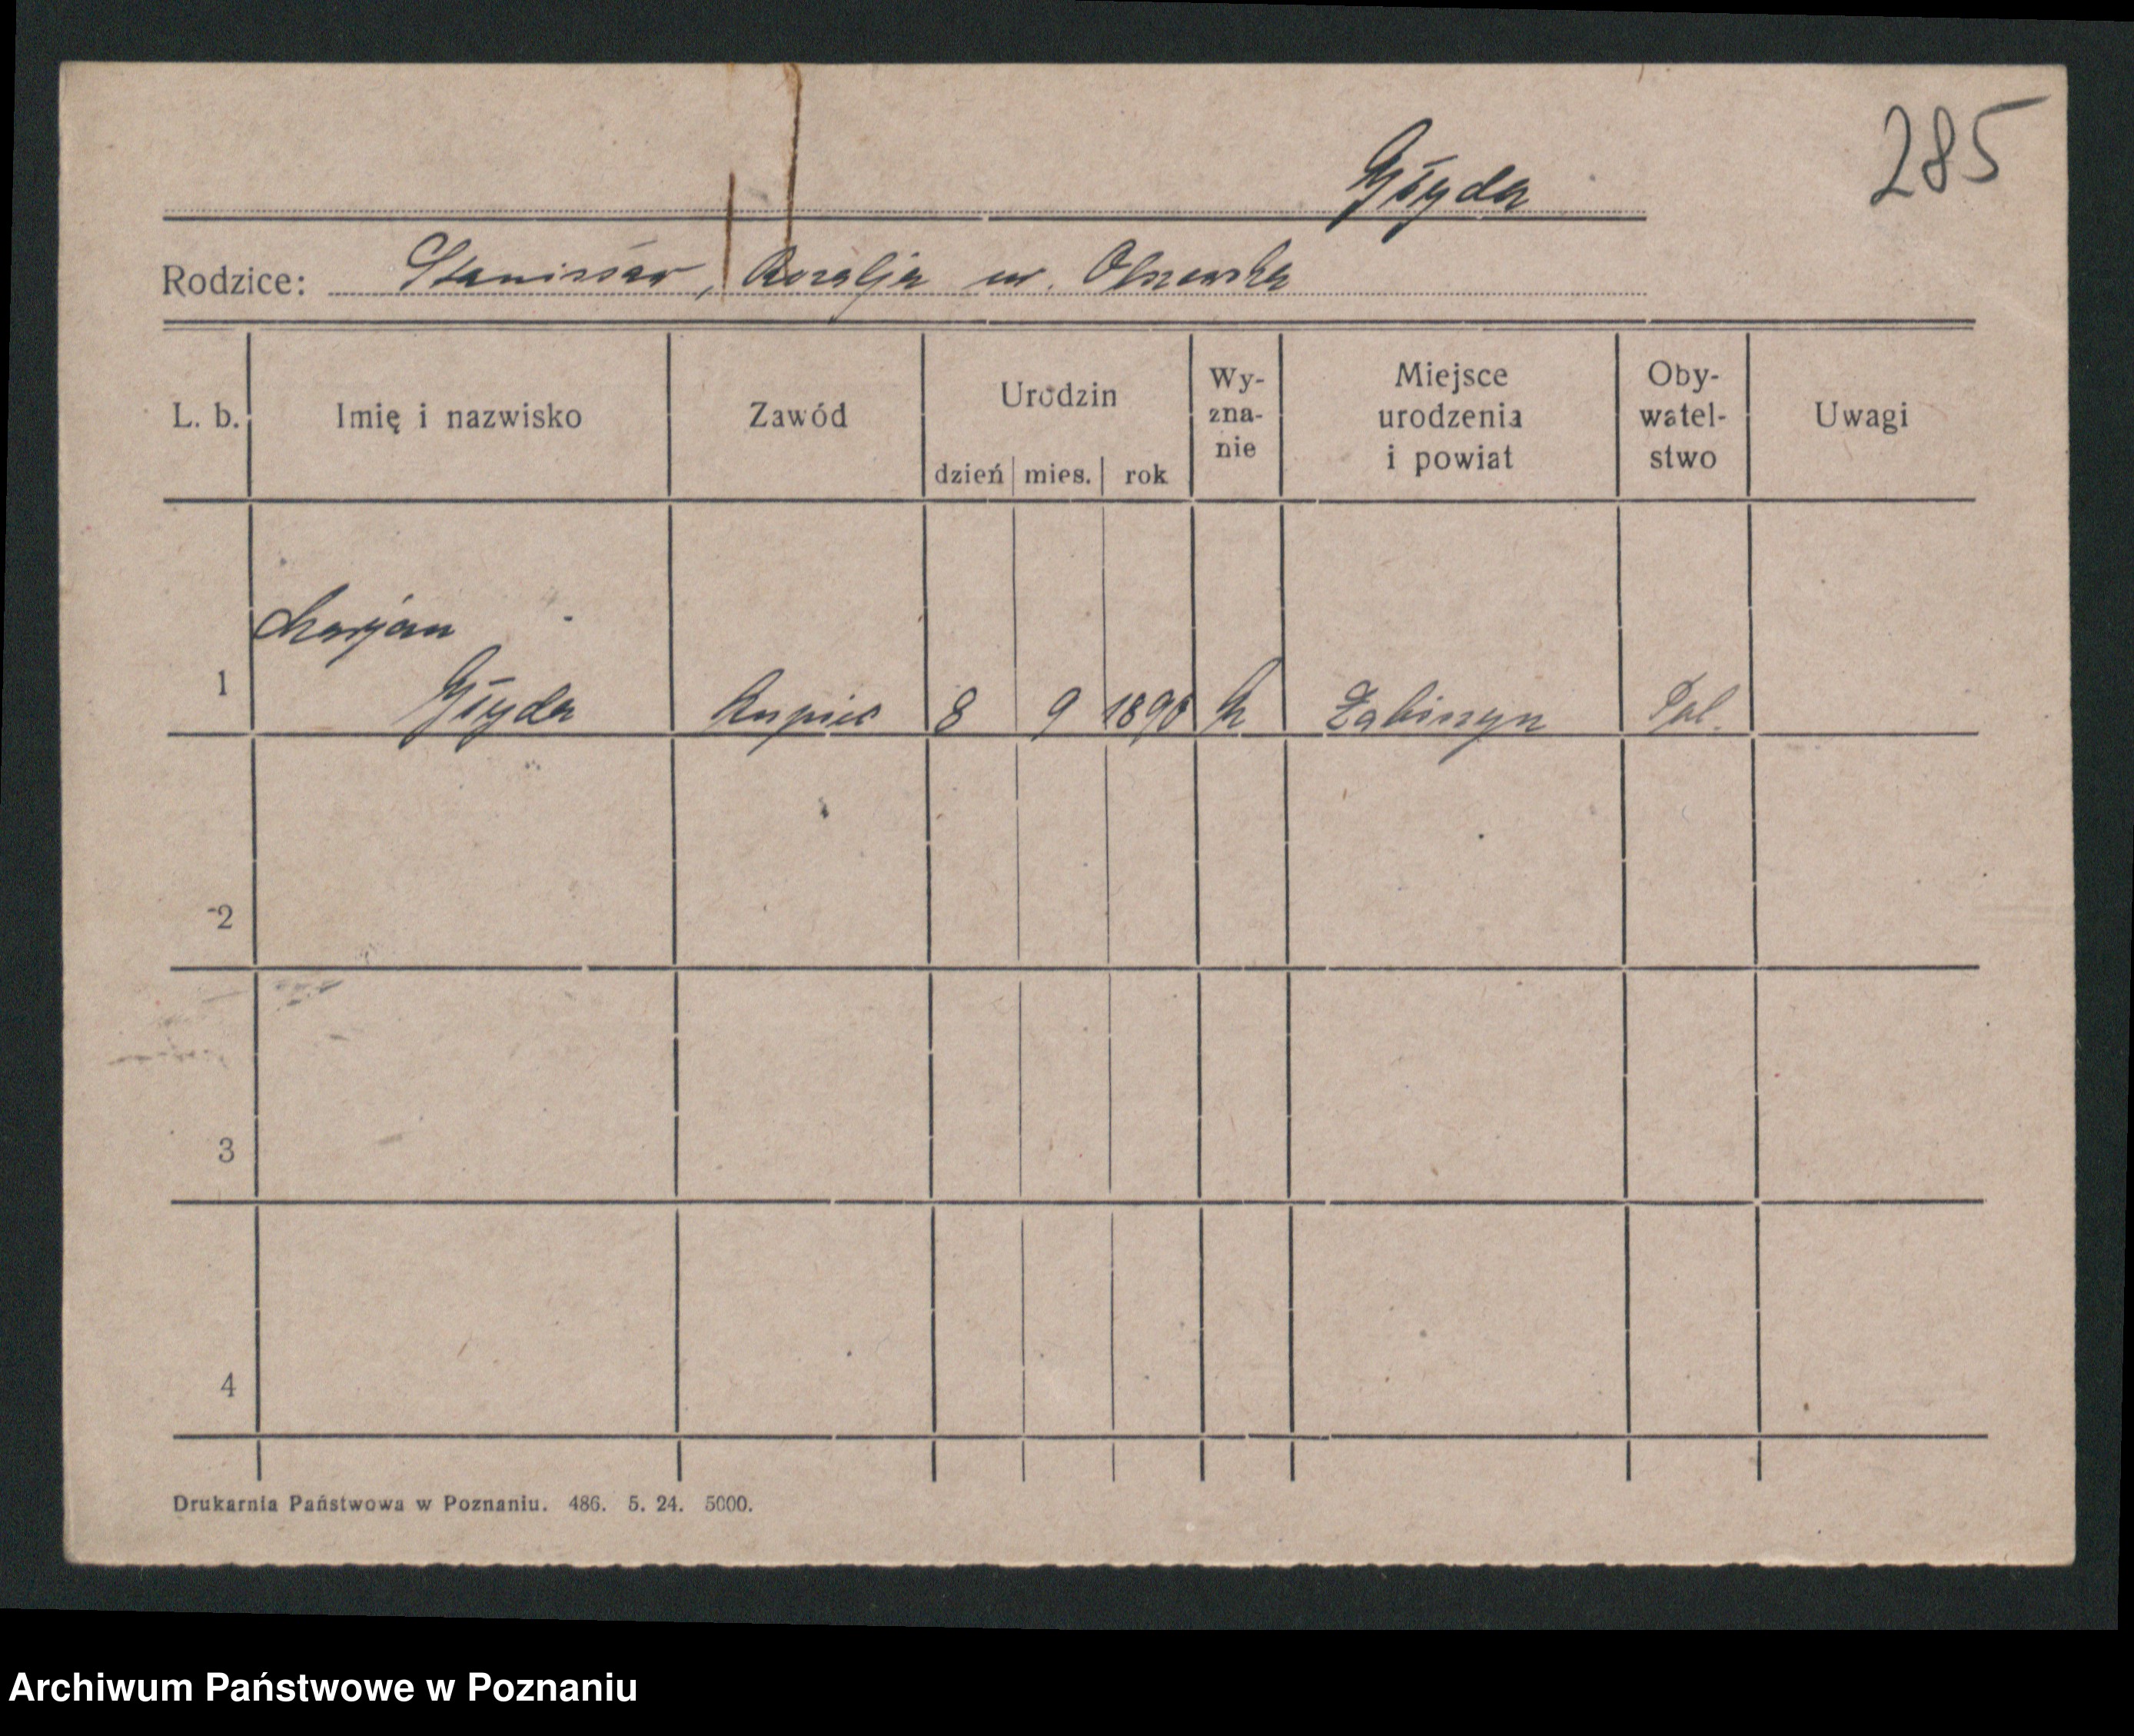 285
Głyda
Rodzice: Stanisław, Rozalja ur. Olszewska
L. b. Imię i nazwisko Zawód Urodzin dzień mies. rok Wy-zna-nie Miejsce urodzenia i powiat Oby-watel-stwo Uwagi
Marjan
1 Głyda Kupiec 8 9 1890 k Żabiczyn Pol.
2
3
4
Drukarnia Państwowa w Poznaniu. 486. 5. 24. 5000.
Archiwum Państwowe w Poznaniu